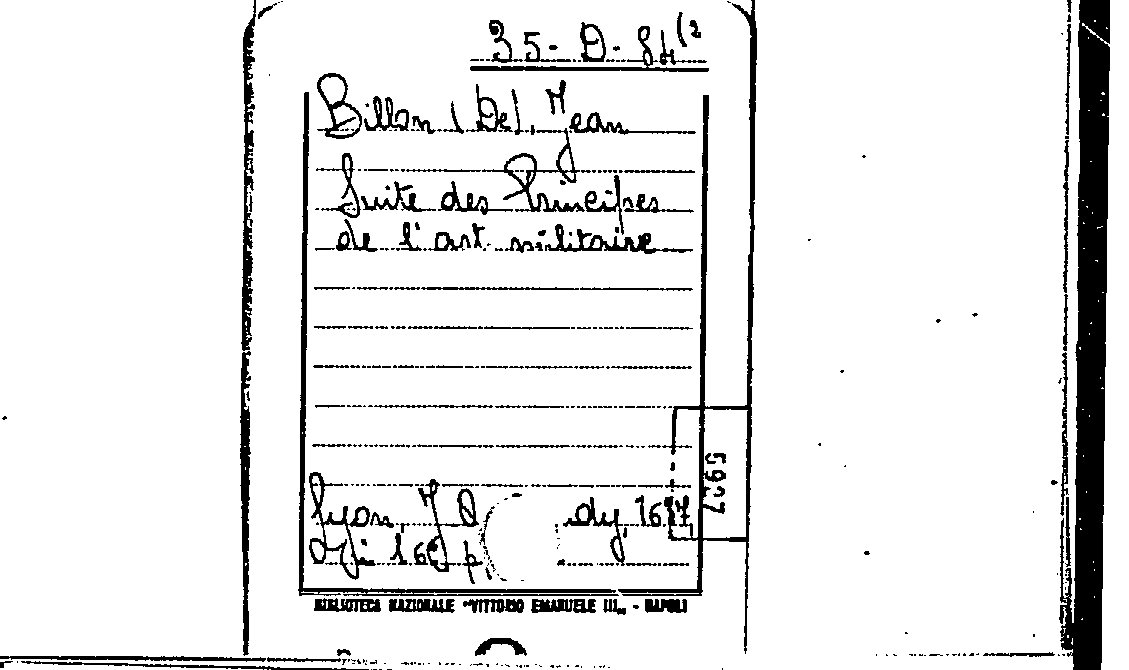 35-D-84(2
Billon (De), Jean
Suite des Principes
de l'art militaire
5927
Lyon, J D dy, 16
p.
BIBLIOTECA NAZIONALE "VITTORIO EMANUELE III„ - NAPOLI